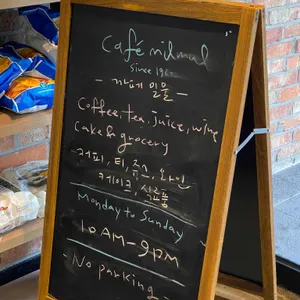 Café milmul
Since 196
- 카페 밀물 -
Coffee, tea, juice, wine
Cake & grocery
- 커피, 티, 주스, 와인
케이크, 식료품
Monday to Sunday
10AM-9PM
- No parking -